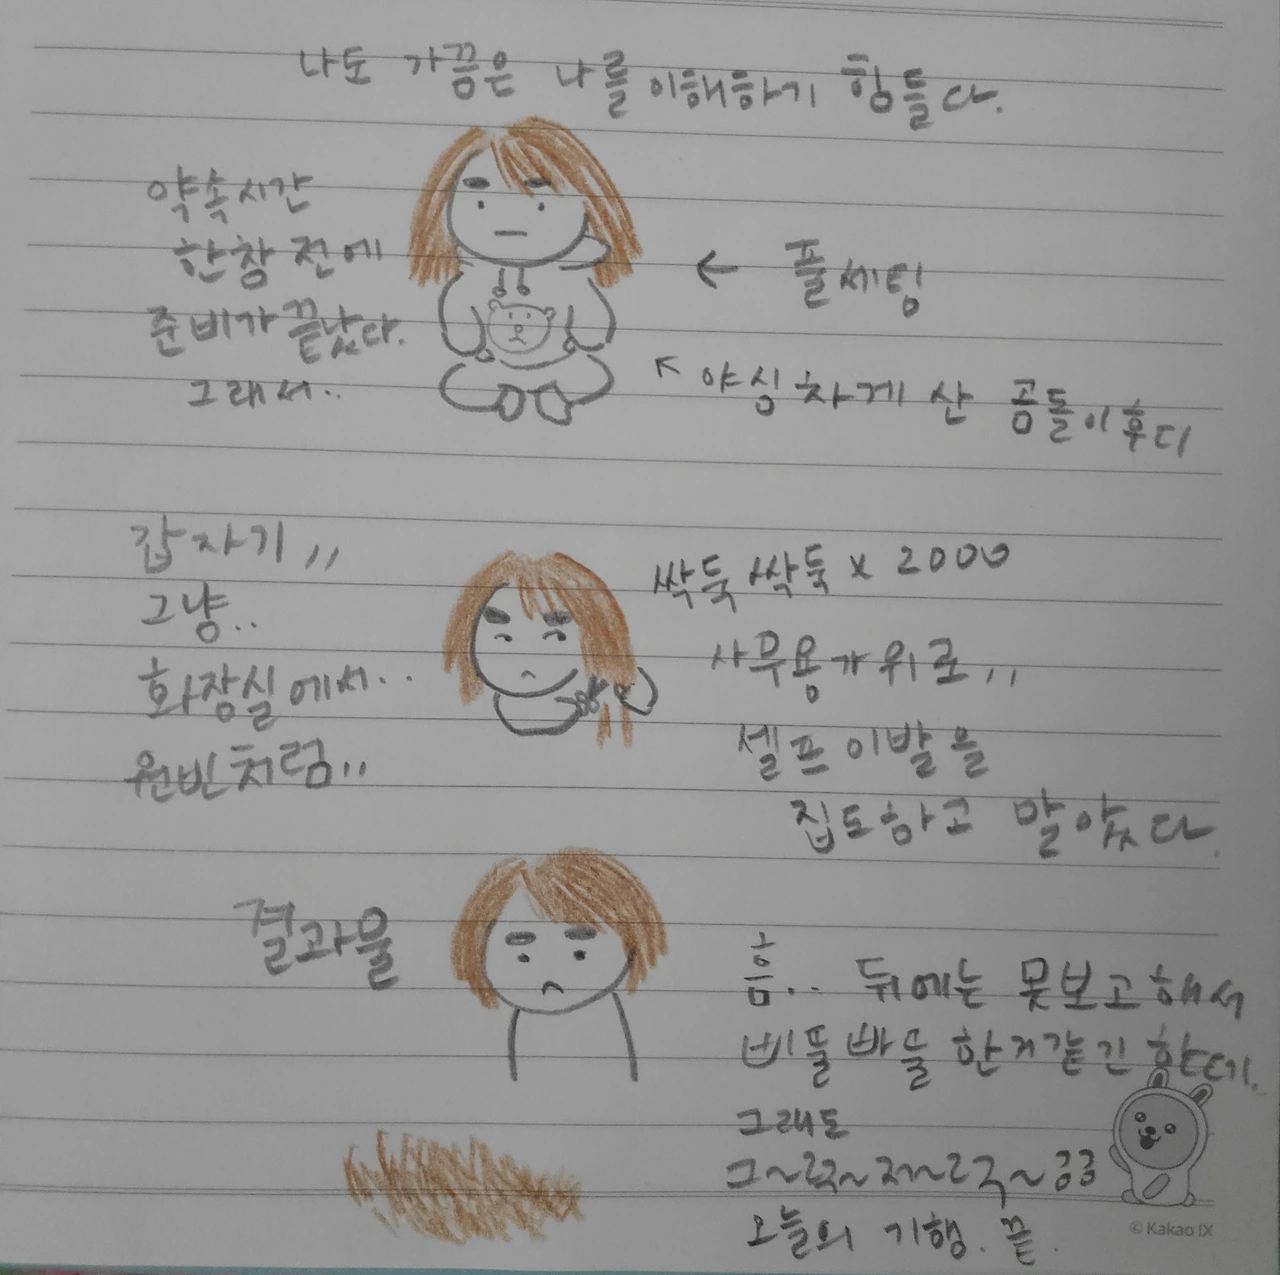 나도 가끔은 나를 이해하기 힘들다.
약속시간
한창 전에
준비가 끝났다.
그래서..
← 풀세팅
↖ 야심차게 산 곰돌이후디
갑자기,,
그냥..
화장실에서..
원빈처럼,,
싹둑싹둑 x 2000
사무용가위로,,
셀프이발을
집도하고 말았다.
결과물
흠.. 뒤에는 못보고해서
삐뚤빠뚤한거같긴 한데.
그래도
오늘의 기행. 끝.
© Kakao IX